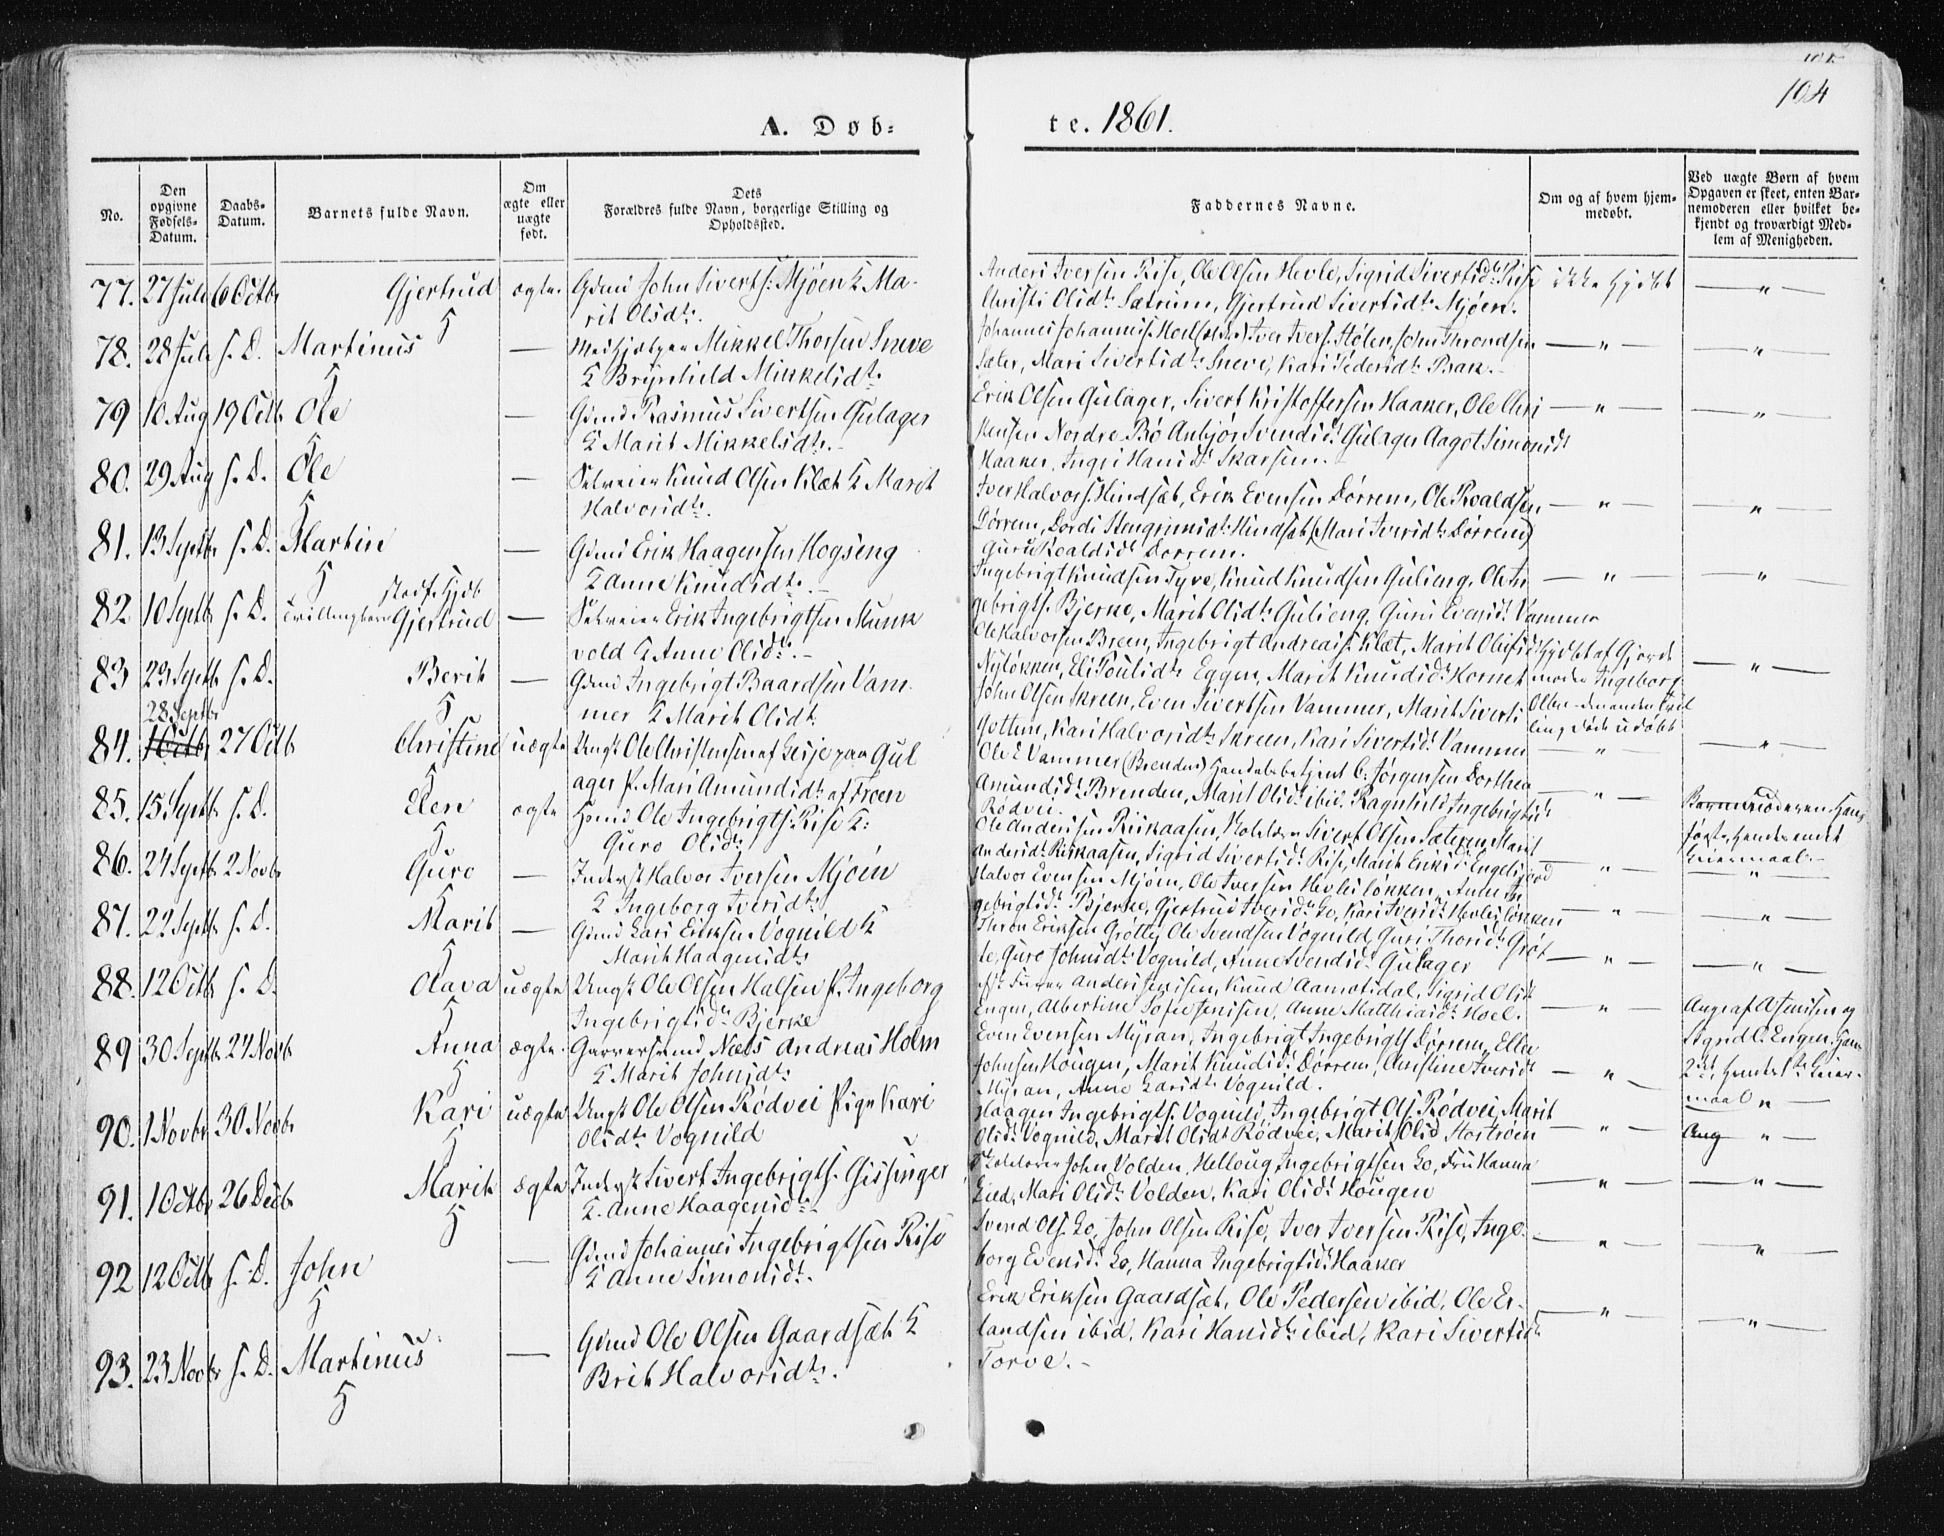 194
A. Døb-
te. 1861.
No.
Den opgivne Fødsels-Datum.
Daabs-Datum.
Barnets fulde Navn.
Om ægte eller uægte født.
Dets Forældres fulde Navn, borgerlige Stilling og Opholdssted.
Faddernes Navne.
Om og af hvem hjem-medøbt.
Ved uægte Børn af hvem Opgaven er skeet, enten Bar-nemoderen eller hvilket be-kjendt og troværdigt Med-lem af Menigheden.
77. 27 Juli 6 Octbr Gjertrud ægte Gdmd John Siverts: Mjøen & Ma-
rit Olsdt.
Anders Iversen Rise, Ole Olsen Hevle, Sigrid Sivertsdt: Rise
Christi Olsdt: Sætrum, Gjertrud Sivertsdt: Mjøen.
78. 28 Juli s. D. Martinus — Mikkel Thorsen Sneve
& Brynhild Mikkelsdt.
Johannes Johannes. Hoel Iver Ivers. Stølen, John Throndsen
Sæter, Mari Sivertsdt: Sneve, Kari Pedersdt: Bak.
79 10 Aug 19 Octb Ole — Gdmd Rasmus Sivertsen Gulager
& Marit Mikkelsdt.
Erik Olsen Gulager, Sivert Kristoffersen Haaker, Ole Chri
stensen Nordre Bø Anbjør Svendsdt: Gulager Aagot Simonsdt
Haaker, Ingri Hansdt: Skarsem.
80. 29 Aug s. D. Ole — Selveier Knud Olsen Klæt & Marit
Halvorsdt.
Iver Halvors. Hindsæt, Erik Evensen Dørrem, Ole Roaldsen
Dørrem, Dordi Stengrimsdt: Hindsæt (Mari Iversdt: Dørrem)
Guru Roaldsdt Dørrem.
81. 13 Septb s. D. Martin — Gdmd Erik Haagensen Hogseng
& Anne Knudsdt.
Ingebrigt Knudsen Tyve, Knud Knudsen Gulieng, Ole In
gebrigts. Bjerke, Marit Olsdt: Gulieng, Guru Evensdt: Vammer
82 10 Septb s. D. Tvillingbarn Gjertrud — Selveier Erik Ingebrigtsen Munk
vold & Anne Olsdt.
Ole Halvorsen Breen, Ingebrigt Andreas. Klæt, Marit Olufsd
Nyløkken, Eli Poulsdt: Eggen, Marit Knudsdt: Hornet
Hjdbt af Gjorde
moder Ingeborg
83 23 Septb s. D. Berit — Gdmd Ingebrigt Baardsen Vam
mer & Marit Olsdt.
John Olsen Skreen, Even Sivertsen Vammer, Marit Siverts
Gottem, Kari Halvorsdt: Skreen, Kari Sivertsdt: Vammer
28 Septbr
84. 1 Octbr 27 Octb Christine uægte Ungk: Ole Christensen af Lesje paa Gul
ager P. Mari Amundsdt: af Froen
Ole E Vammer (Brenden) Handelsbetjent C. Jørgensen Dorthea
Amundsdt: Brenden, Marit Olsdt: ibid. Ragnhild Ingebrigtsdt
Rødvei.
85. 15 Septb s. D. Elen ægte Hmd Ole Ingebrigts. Rise &:
Guro Olsdt:
Ole Andersen Riskaasen, Sivert Olsen Sæteren, Marit
Andersdt: Riskaasen, Sigrid Sivertsdt: Rise, Marit Eriksdt: Engelsjord
86. 24 Septb 2 Novb Guro — Inderst Halvor Iversen Mjøen
& Ingeborg Iversdt:
Halvor Evensen Mjøen, Ole Iversen Hevlesløkken, Anne In
gebrigtsdt: Bjerke, Gjertrud Iversdt: Lo, Kari Iversdt: Hevlesløkken
87. 22 Septb s. D. Marit — Gdmd Lars Eriksen Vognild &
Marit Haagensdt:
Thron Eriksen Grøtte, Ole Svendsen Vognild, Guri Thorsdt: Grøt
te, Guro Johnsdt: Vognild, Anne Svendsdt: Gulager
88. 12 Octb s. D. Olava uægte Ungk Ole Olsen Halsen P. Ingeborg
Ingebrigtsdt: Bjerke
Knud Aamotsdal, Sigrid Olsdt
Engen, Albertine Sofie Jensen, Anne Matthiasdt: Hoel.
Ang: af A Jensen og
Sigrid O. Engen.
89 30 Septb 24 Novb Anna ægte Garversvend Niels Andreas Holm
& Marit Johnsdt:
Even Evensen Myran, Ingebrigt Ingebrigts. Dørrem, Ellen
Johnsen Hougen, Marit Knudsdt: Dørrem, Christine Iversdt
Myran, Anne Larsdt: Vognild.
90. 1 Novbr 30 Novb Kari uægte Ungk Ole Olsen Rødvei Pige Kari
Olsdt: Vognild
Haagen Ingebrigts. Vognild, Ingebrigt Ols. Rødvei, Marit
Olsdt: Vognild, Marit Olsdt Rødvei, Marit Olsd. Horstrøen
Ang
91. 1 Octbr 26 Decb Marit ægte Inderst Sivert Ingebrigts. Gissinger
& Anne Haagensdt:
John Volden, Helloug Ingebrigtsen Lo, Fru Hanna
Lied, Mari Olsdt: Volden, Kari Olsdt: Hougen
92 12 Octb s. D. John — Gdmd Johannes Ingebrigtsen Rise
& Anne Simonsdt.
Svend Ols. Lo, John Olsen Rise, Iver Iversen Rise, Inge-
borg Evensdt: Lo, Hanna Ingebrigtsdt: Haaker
93. 23 Novb s. D. Martinus — Gdmd Ole Olsen Gaardsæt &
Brit Halvorsdt.
Erik Eriksen Gaardsæt, Ole Pedersen ibid, Ole Er-
landsen ibid, Kari Hansdt: ibid, Kari Sivertsdt
Torve.